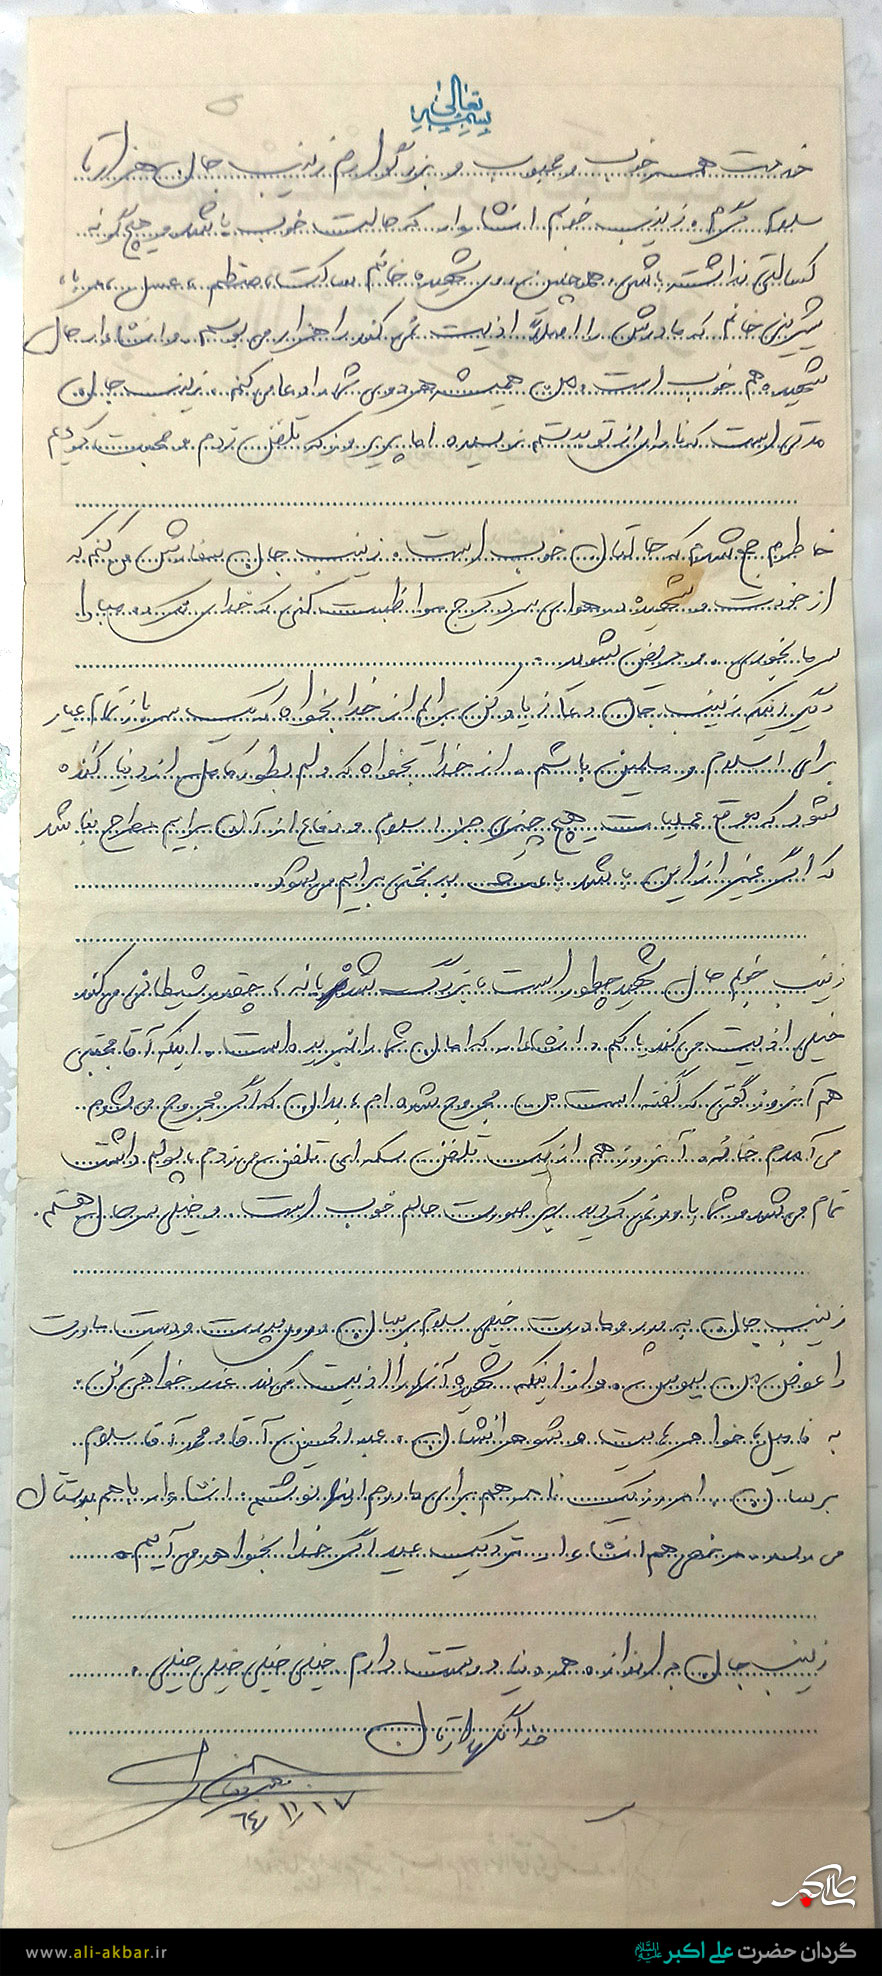 بسمه تعالی
خدمت همسر خوب و محبوب و بزرگوارم زینب جان هزار تا
سلام گرم. زینب خوبم انشاءالله که حالت خوب باشد و هیچ گونه
کسالتی نداشته باشی. همچنین شهیده خانم ساکت، منظم، عسل، مربا،
شیرینی خانم که مادرش را اصلاً اذیت نمی کند را هزار می بوسم. و انشاءالله حال
شهیده هم خوب است. من همیشه هر دوی شما را دعا می کنم. زینب جان
مدتی است که نامه ای از تو بدستم نرسیده اما پریروز که تلفن زدم و صحبت کردم
خاطرم جمع شد که حالتان خوب است. زینب جان سفارش می کنم که
از خودت و شهیده در هوای سرد کرج مواظبت کنی که خدای نکرده مبادا
سرما بخوری و مریض شوید.
دیگر اینکه زینب جان دعا زیاد کن برایم از خدا بخواه که یک سرباز تمام عیار
برای اسلام و مسلمین باشم. از خدا بخواه که دلم بطور کامل از دنیا کنده
شود که موقع عملیات هیچ چیزی جز اسلام و دفاع از آن برایم مطرح نباشد
که اگر غیر از این باشد باعث بدبختی برایم می شود.
زینب خوبم حال شهیده چطور است، بزرگ شده یا نه، چقدر شیطانی می کند
خیلی اذیت می کند یا کم. انشاءالله که امان شما را نبریده است. اینکه آقا مجتبی
هم آنروز گفتی که گفته است من مجروح شده ام، بدان که اگر مجروح می شدم
می آمدم خانه. آنروز هم از یک تلفن سکه ای تلفن می زدم، پولم داشت
تمام می شد و شما باور نمی کردید بهر صورت حالم خوب است و خیلی سرحال هستم.
زینب جان به پدر و مادرت خیلی سلام برسان و روی پدرت و دست مادرت
را عوض من ببوس. و از اینکه شهیده آنها را اذیت می کند عذر خواهی کن.
به فامیل، خواهرهایت و شوهرانشان، عبدالحسین آقا و محمد آقا سلام
برسان. امروز یک نامه هم برای مادرم اینها نوشتم. انشاءالله با هم بدستتان
می رسد. مرخصی هم انشاءالله نزدیک عید اگر خدا بخواهد می آیم.
زینب جان به اندازه همه دنیا دوستت دارم خیلی خیلی خیلی خیلی.
خدا نگهدارتان
۶۴/۱۱/۱۷
علی اکبر
گردان حضرت علی اکبر علیه السلام
www.ali-akbar.ir